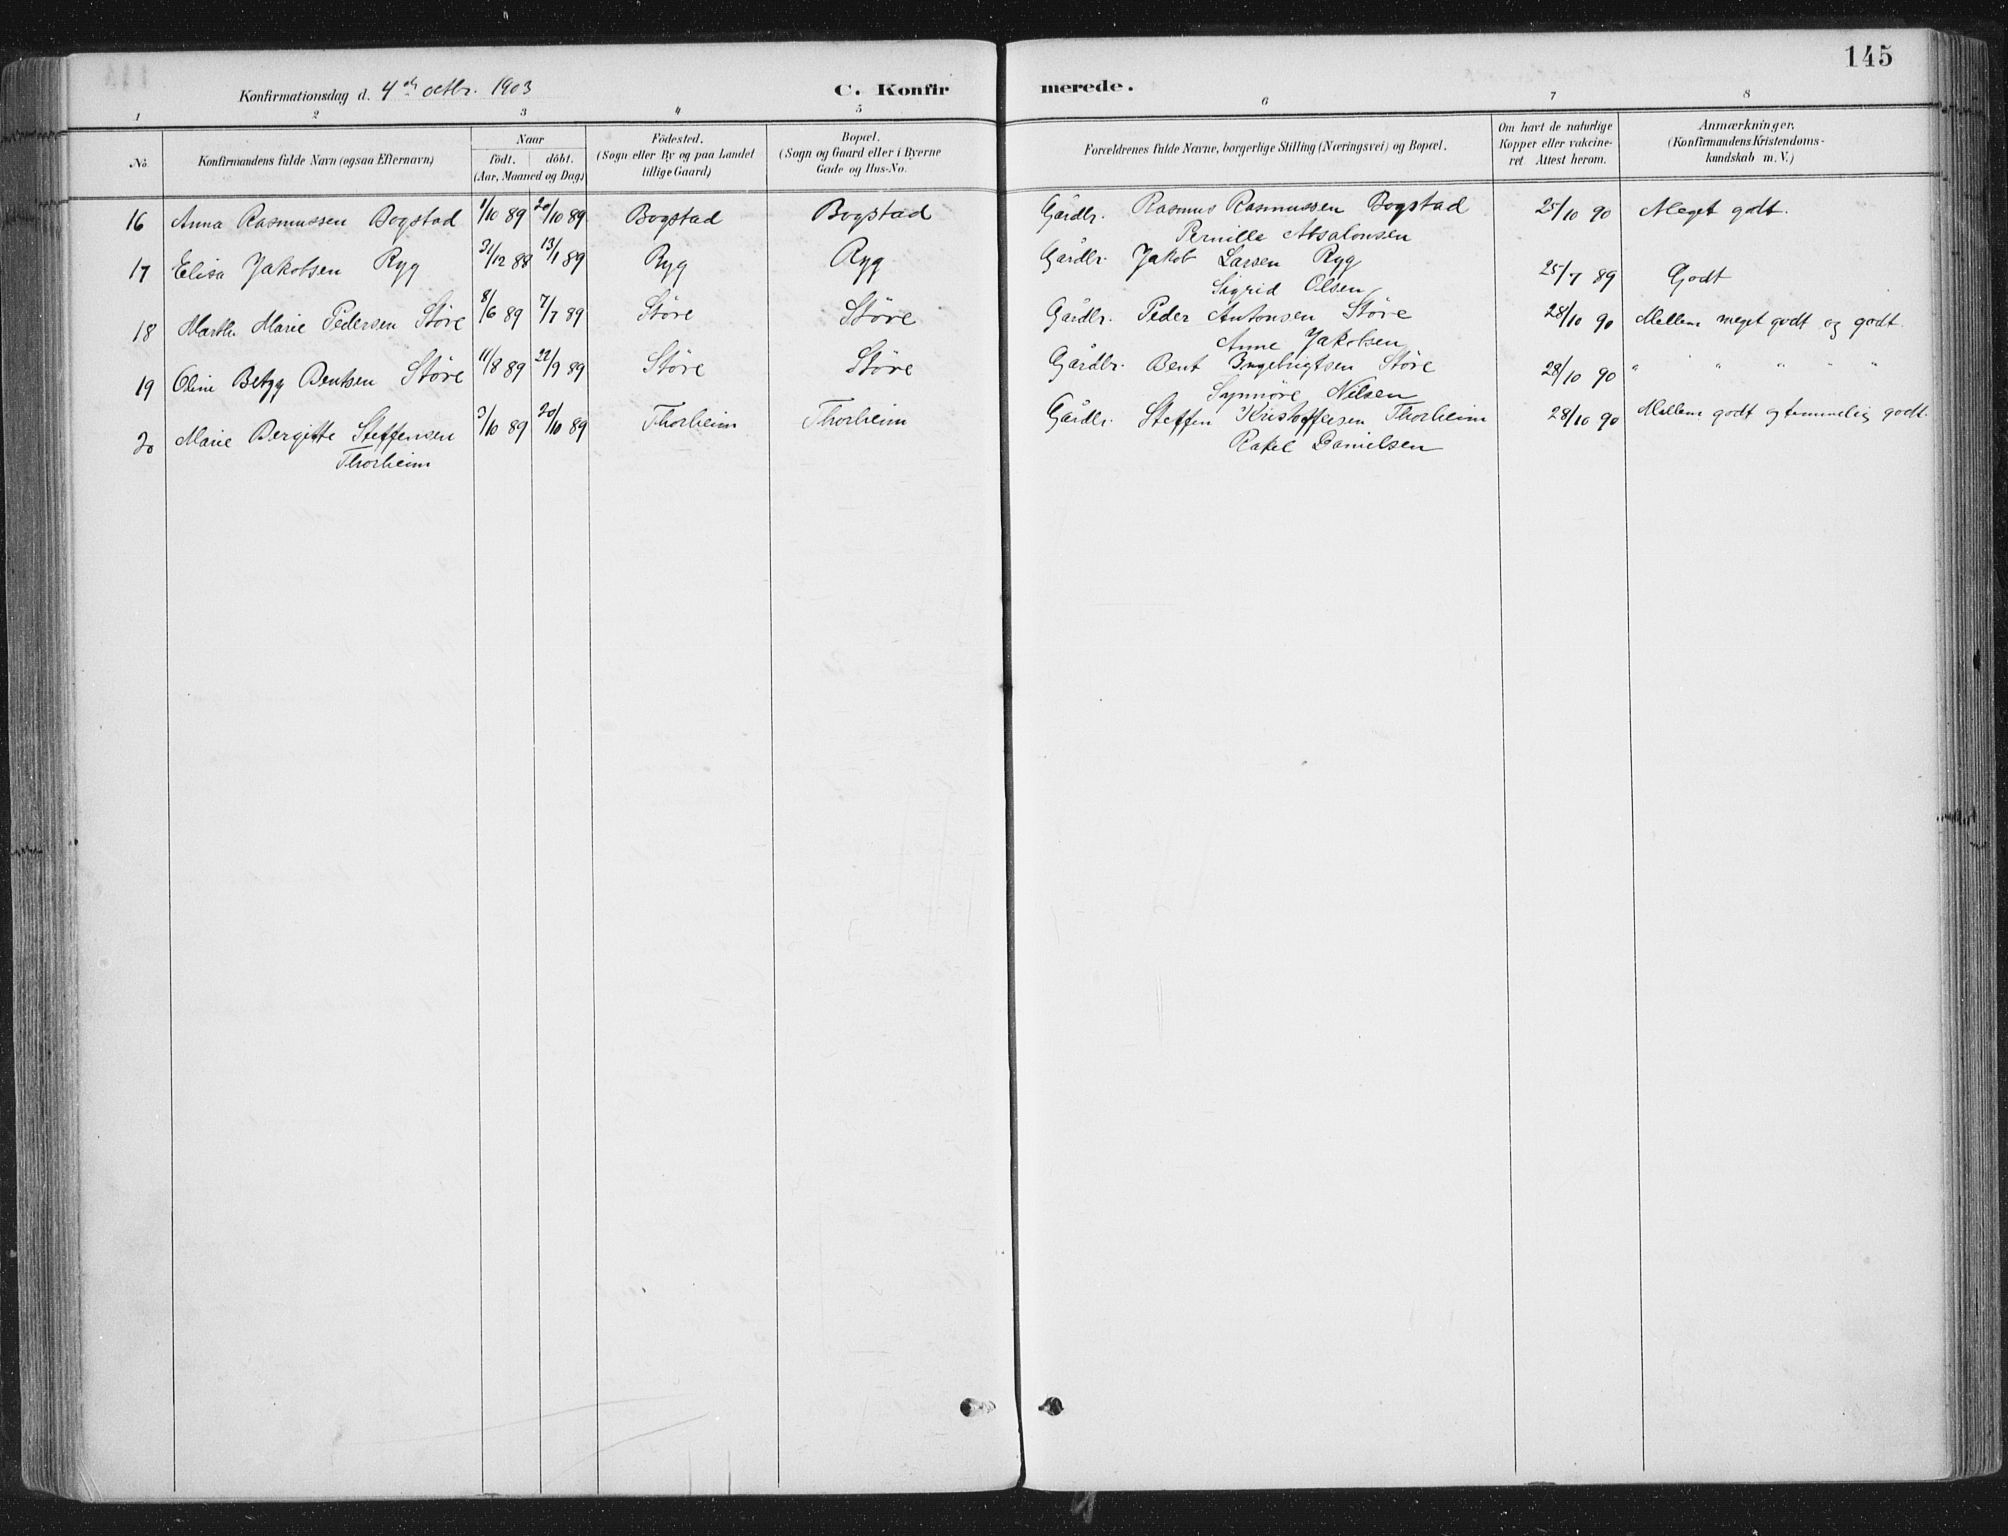 145
Konfirmationsdag d. 4de octbr. 1903 C. Konfirmerede.
1 2 3 4 5 6 7 8
No. Konfirmandens fulde Navn (ogsaa Efternavn) Naar födt. döbt. (Aar, Maaned og Dag) Födested. (Sogn eller By og paa Landet tillige Gaard) Bopæl. (Sogn og Gaard eller i Byerne Gade og Hus-No. Forældrenes fulde Navne, borgerlige Stilling (Næringsvei) og Bopæl. Om havt de naturlige Kopper eller vakcineret Attest herom. Anmærkninger. (Konfirmandens Kristendomskundskab m. V.)
16 Anna Rasmussen Bogstad 1/10 89 20/10 89 Bogstad Bogstad Gårdbr. Rasmus Rasmussen Bogstad 25/10 90 Meget godt.
Pernille Absalonsen
17 Elisa Jakobsen Ryg 31/12 88 13/1 89 Ryg Ryg Gårdbr. Jakob Larsen Ryg 25/7 89 Godt
Sigrid Olsen
18 Marth. Marie Pedersen Störe 8/6 89 7/7 89 Störe Störe Gårdbr. Peder Antonsen Störe 28/10 90 Mellem meget godt og godt.
Anne Jakobsen
19 Oline Betzy Bentsen Störe 11/8 89 22/9 89 Störe Störe Gårdbr. Bent Ingebrigtsen Störe 28/10 90 " " " " "
Synnöve Nilsen
20 Marie Bergitte Steffensen 3/10 89 20/10 89 Thorheim Thorheim Gårdbr. Steffen Kristoffersen Thorheim 28/10 90 Mellem godt og temmelig godt.
Thorheim Rakel Danielsen